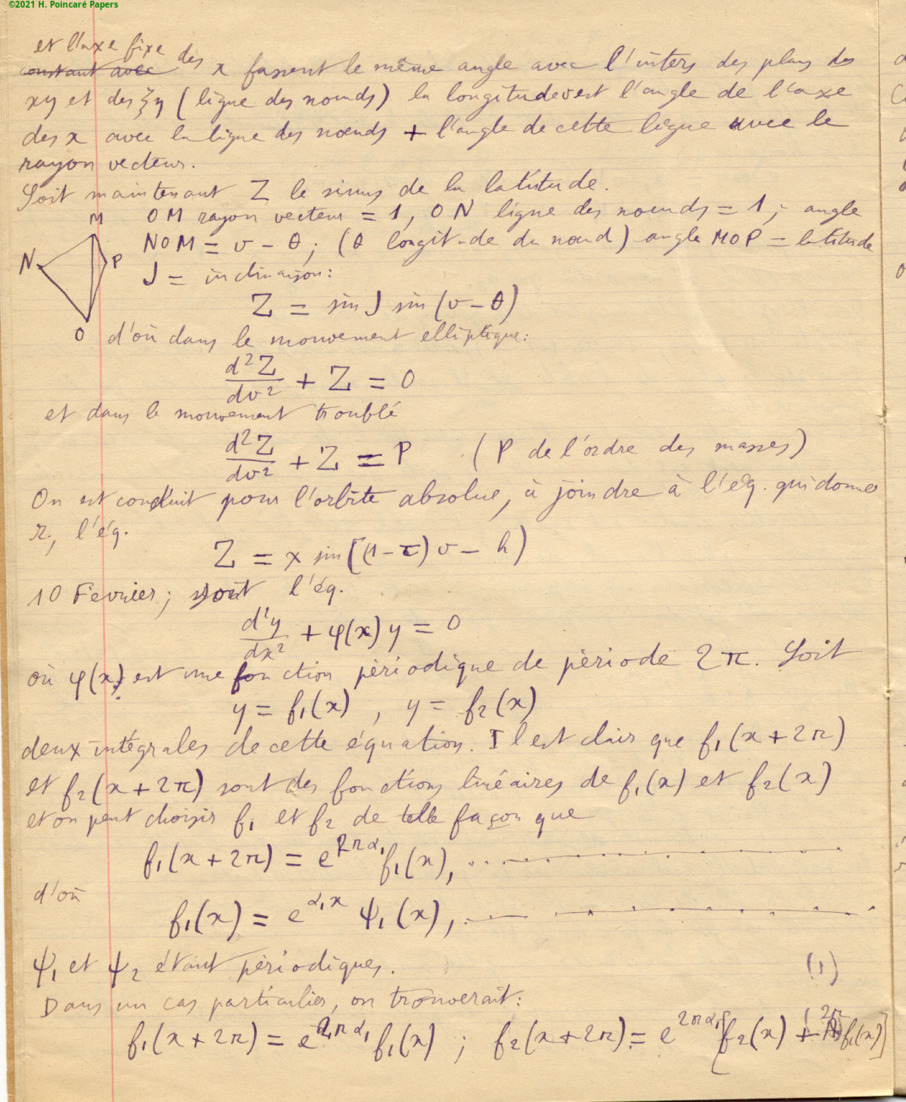 ©2021 H. Poincaré Papers
et l'axe fixe des
constant avec x fassent le même angle avec l'inters des plans des
xy et des ξη (ligne des nœuds) la longitude v est l'angle de l'axe
des x avec la ligne des nœuds + l'angle de cette ligne avec le
rayon vecteur.
Soit maintenant Z le sinus de la latitude.
OM rayon vecteur = 1, ON ligne des nœuds = 1; angle
NOM = v - θ; (θ longitude du nœud) angle MOP = latitude
J = inclinaison:
M
N
P
O
Z = sin J sin (v - θ)
d'où dans le mouvement elliptique:
d²Z/dv² + Z = 0
et dans le mouvement troublé
d²Z/dv² + Z = P (P de l'ordre des masses)
On est conduit pour l'orbite absolue, à joindre à l'éq. qui donne
r, l'éq.
Z = x sin [(1-τ) v - h)
10 Fevrier; soit l'éq.
d²y/dx² + φ(x) y = 0
où φ(x) est une fonction périodique de période 2π. Soit
y = f₁(x) , y = f₂(x)
deux intégrales de cette équation. Il est clair que f₁(x + 2π)
et f₂(x + 2π) sont des fonctions linéaires de f₁(x) et f₂(x)
et on peut choisir f₁ et f₂ de telle façon que
f₁(x + 2π) = e^{2πα₁} f₁(x), ..........
d'où
f₁(x) = e^{α₁x} ψ₁(x), ..........
ψ₁ et ψ₂ étant périodiques. (1)
Dans un cas particulier, on trouverait:
f₁(x + 2π) = e^{2πα₁} f₁(x) ; f₂(x + 2π) = e^{2πα₁} [f₂(x) + 2π f₁(x)]